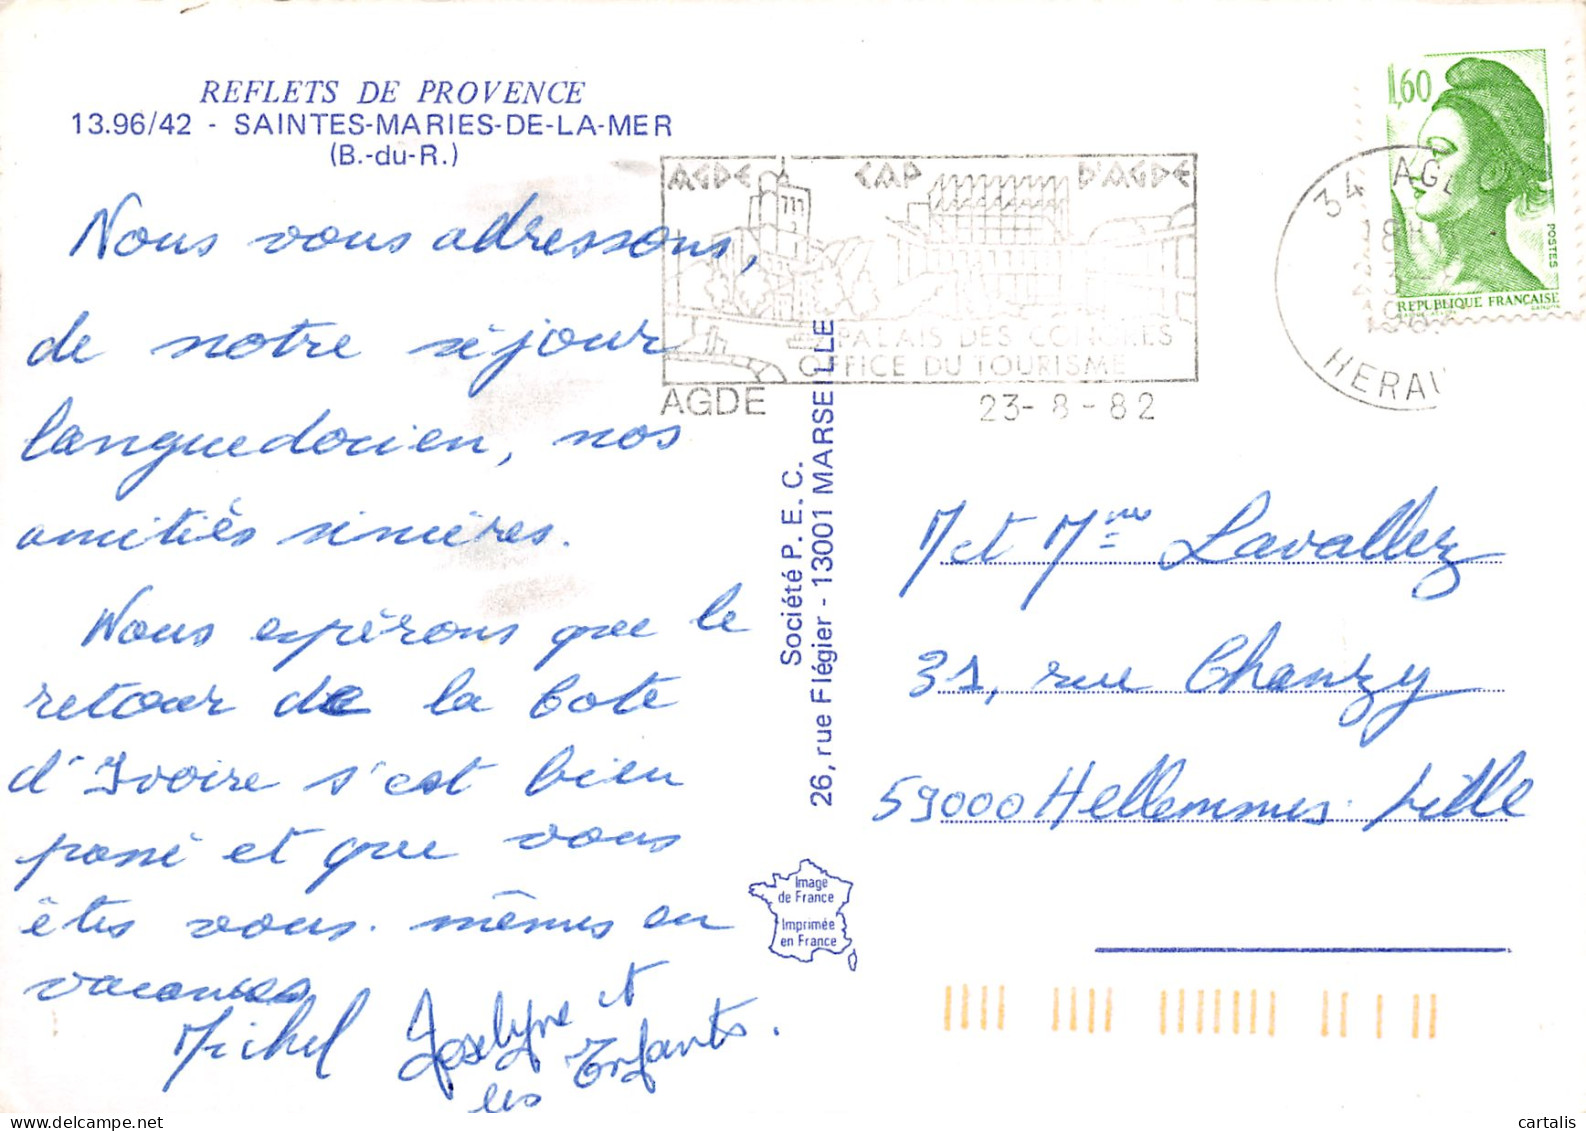 REFLETS DE PROVENCE
13.96/42 - SAINTES-MARIES-DE-LA-MER
(B.-du-R.)
Nous vous adressons,
de notre séjour
languedocien, nos
amitiés sincères.
Nous espérons que le
retour de la Cote
d'Ivoire s'est bien
passé et que vous
êtes vous-mêmes en
vacances
Michel Joselyne et
les Enfants.
AGDE CAP D'AGDE
PALAIS DES CONGRES
OFFICE DU TOURISME
AGDE 23-8-82
34 AGDE
18H
HERAU
1,60
POSTES
REPUBLIQUE FRANÇAISE
Société P.E.C.
26, rue Flégier - 13001 MARSEILLE
M et Mme Lavallez
31, rue Chanzy
59000 Hellemmes-Lille
Image
de France
Imprimée
en France
cartalis